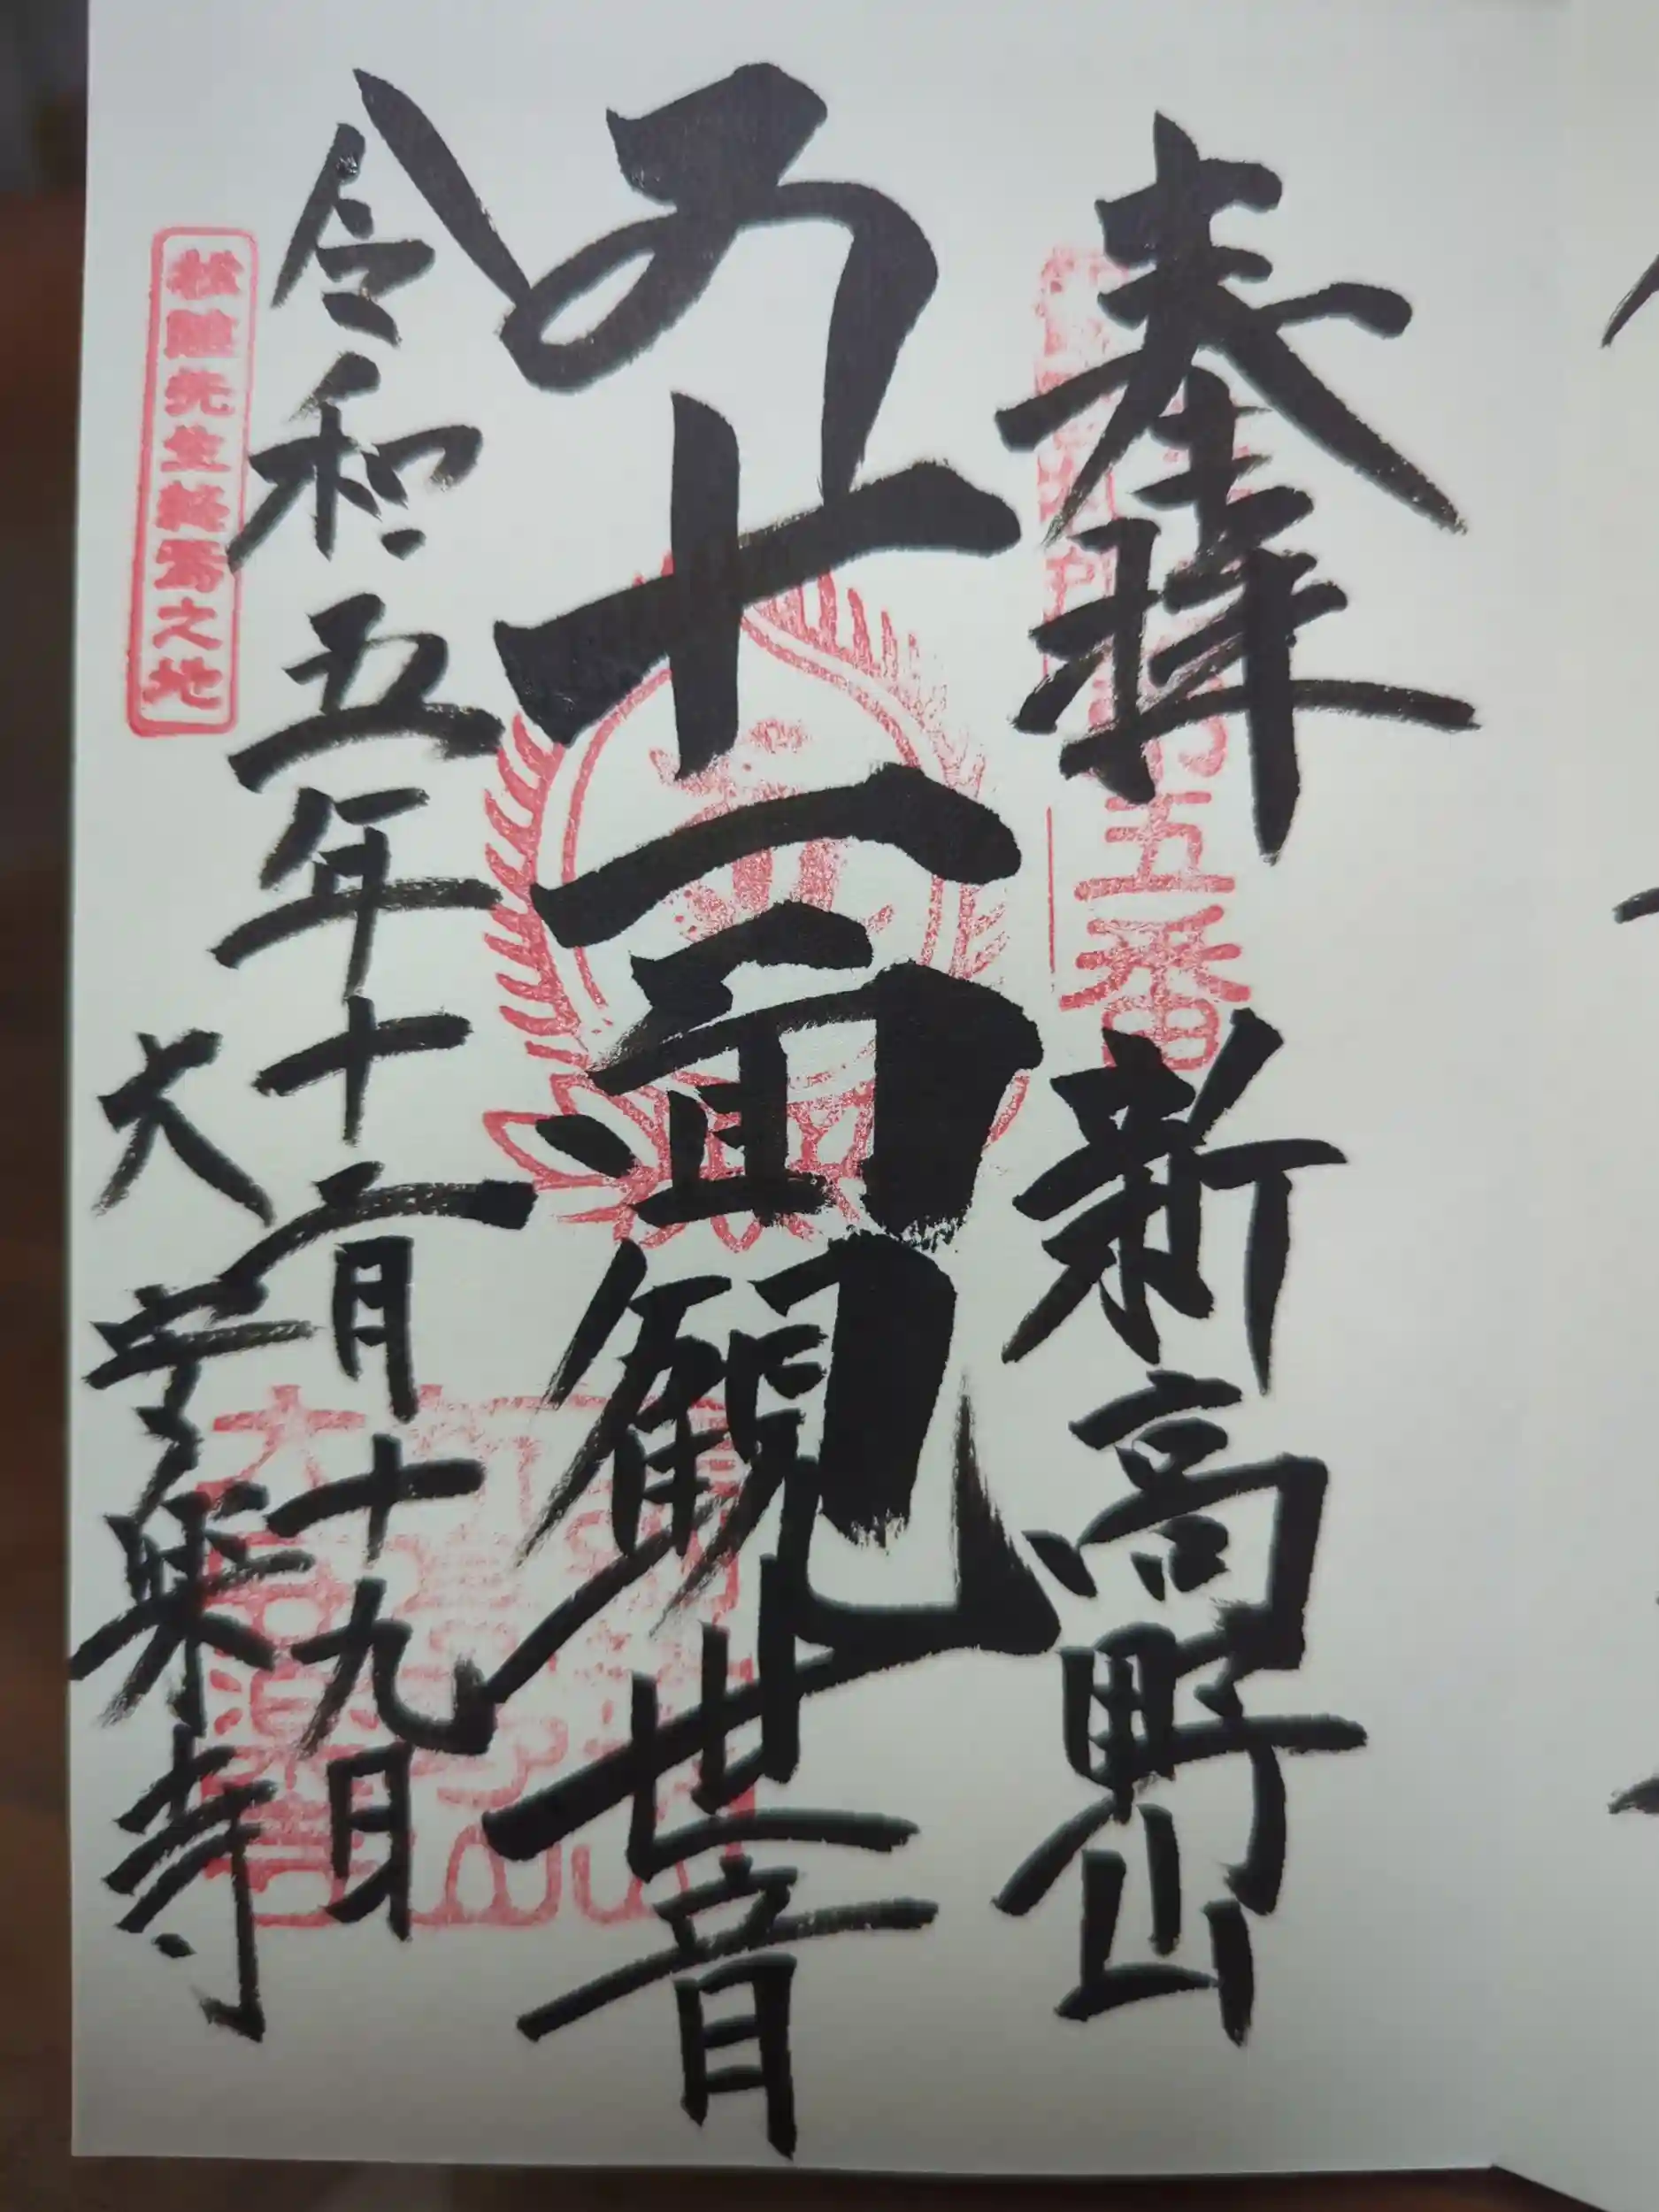 奉拝 新高野山
十一面観世音
令和五年十二月十九日
大安楽寺
松陰先生終焉之地
五番